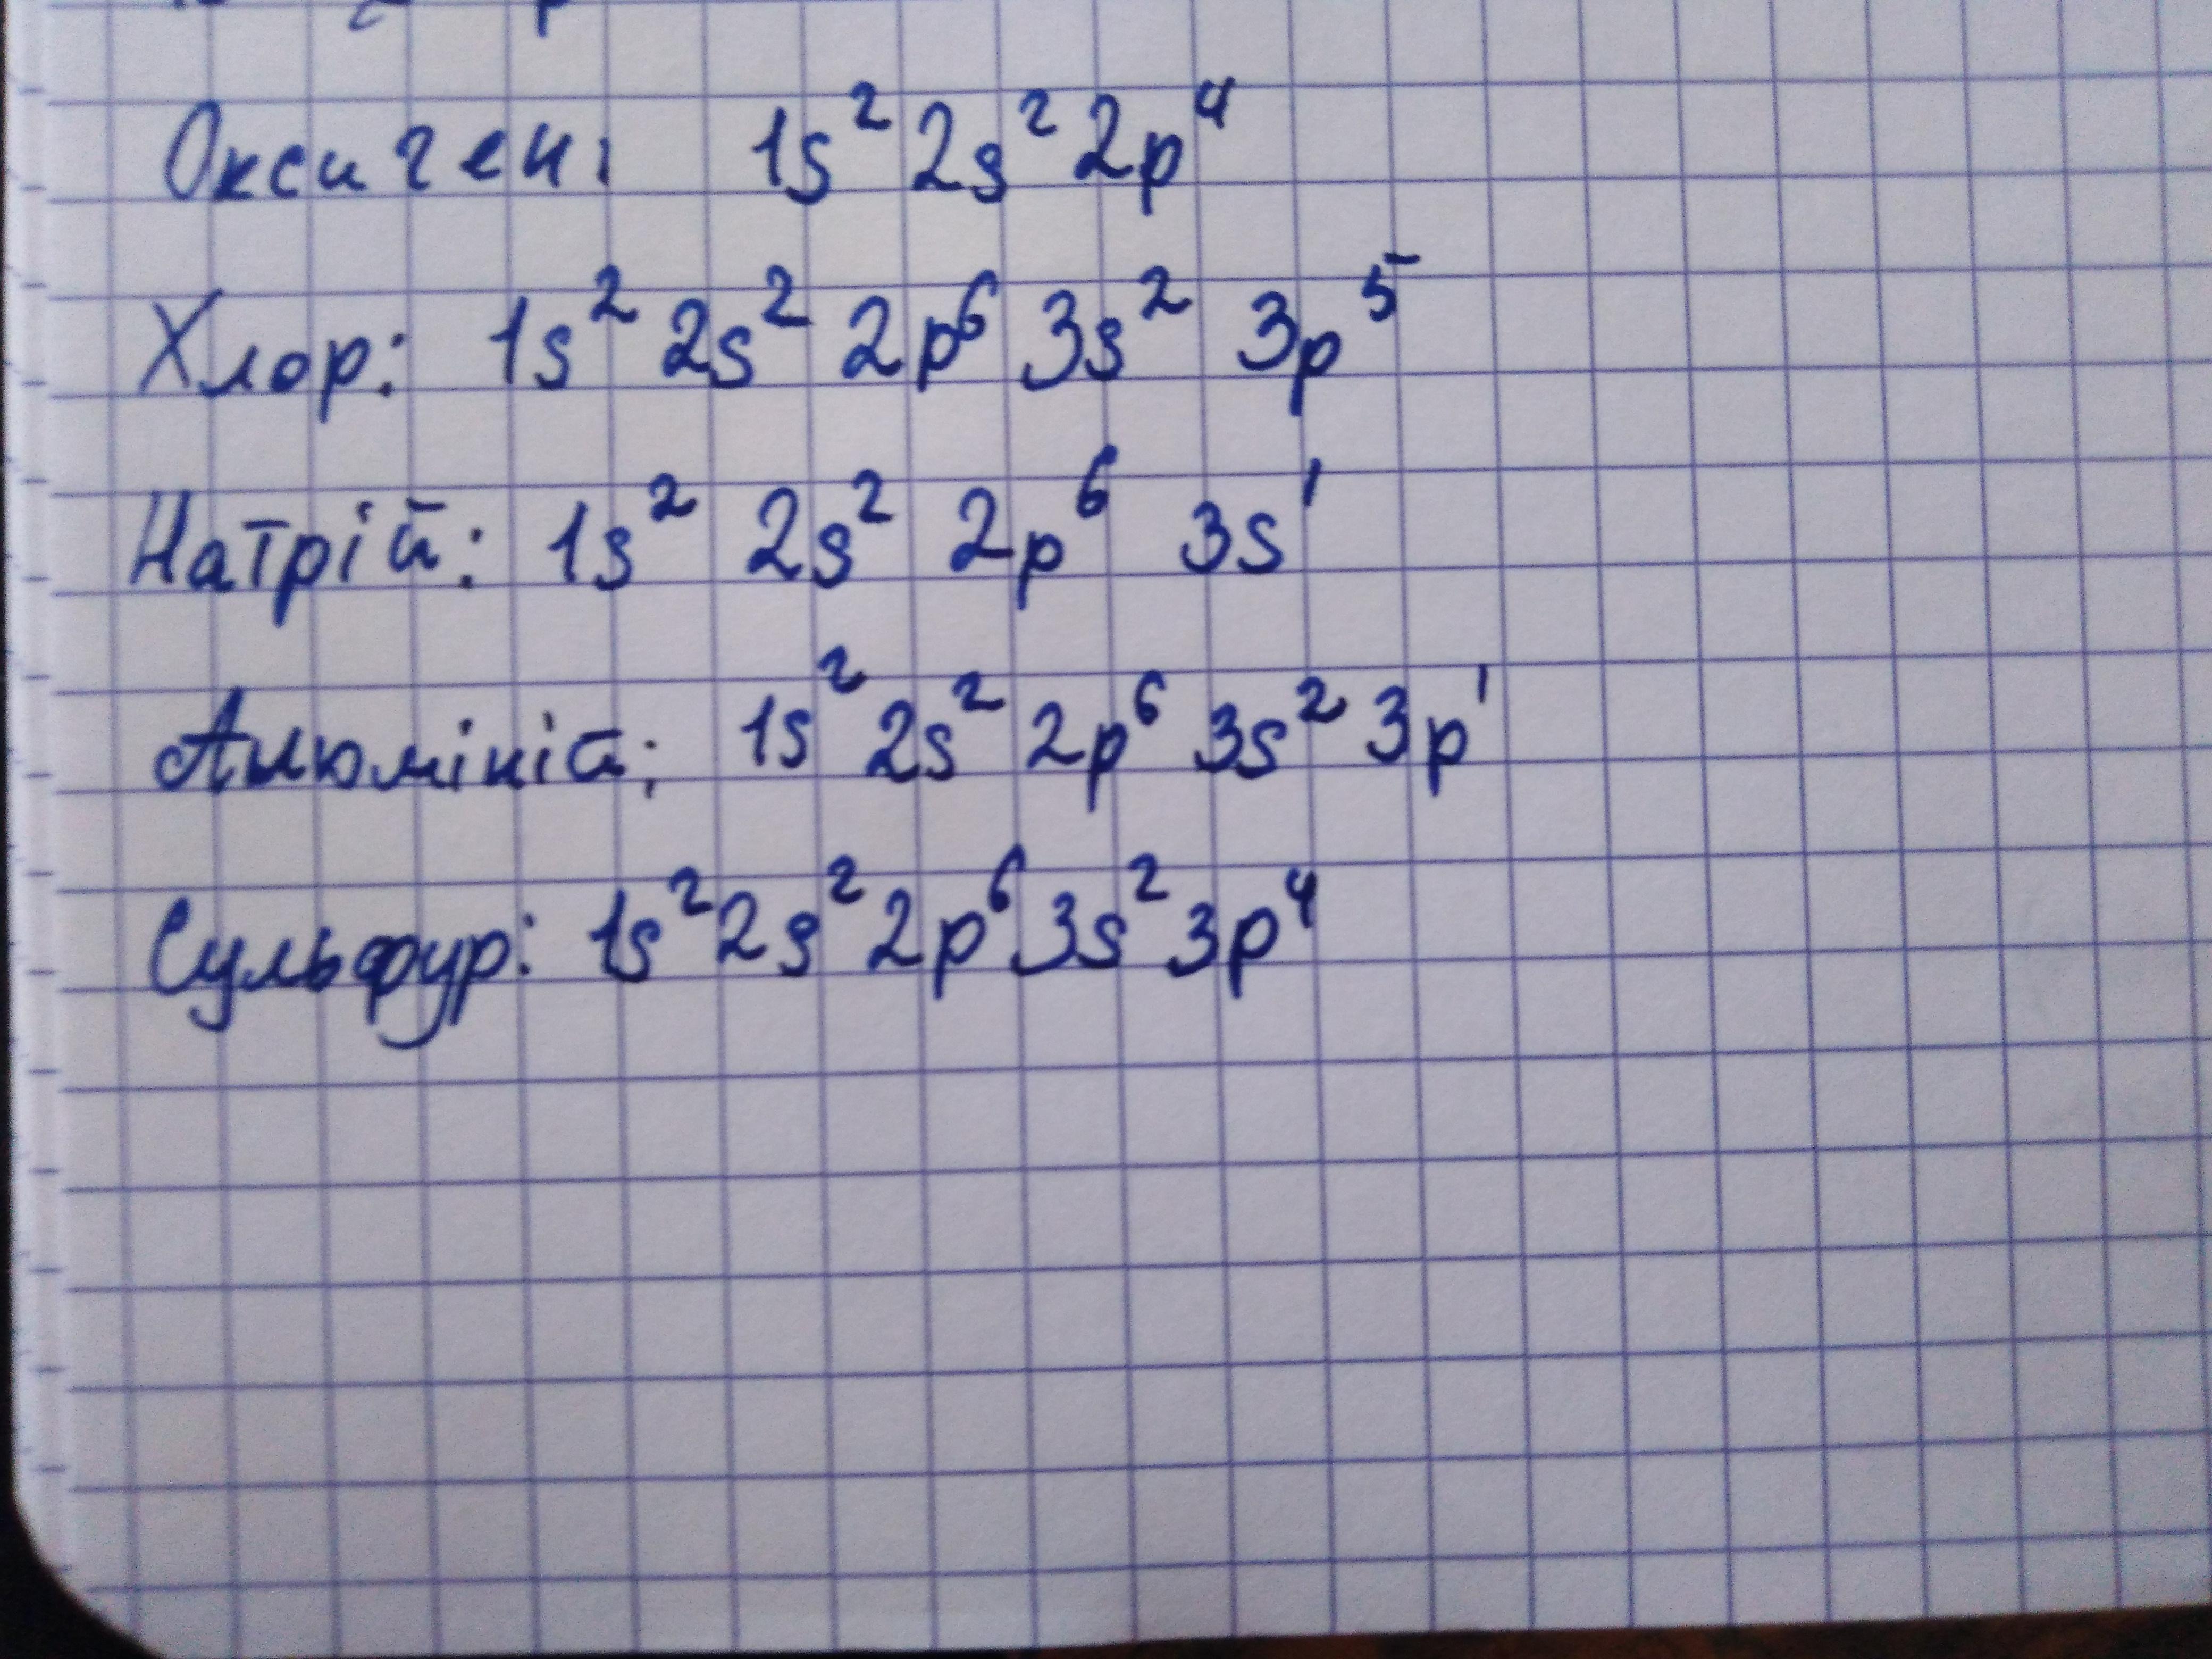 Оксиген: 1s² 2s² 2p⁴
Хлор: 1s² 2s² 2p⁶ 3s² 3p⁵
Натрій: 1s² 2s² 2p⁶ 3s¹
Алюміній: 1s² 2s² 2p⁶ 3s² 3p¹
Сульфур: 1s² 2s² 2p⁶ 3s² 3p⁴